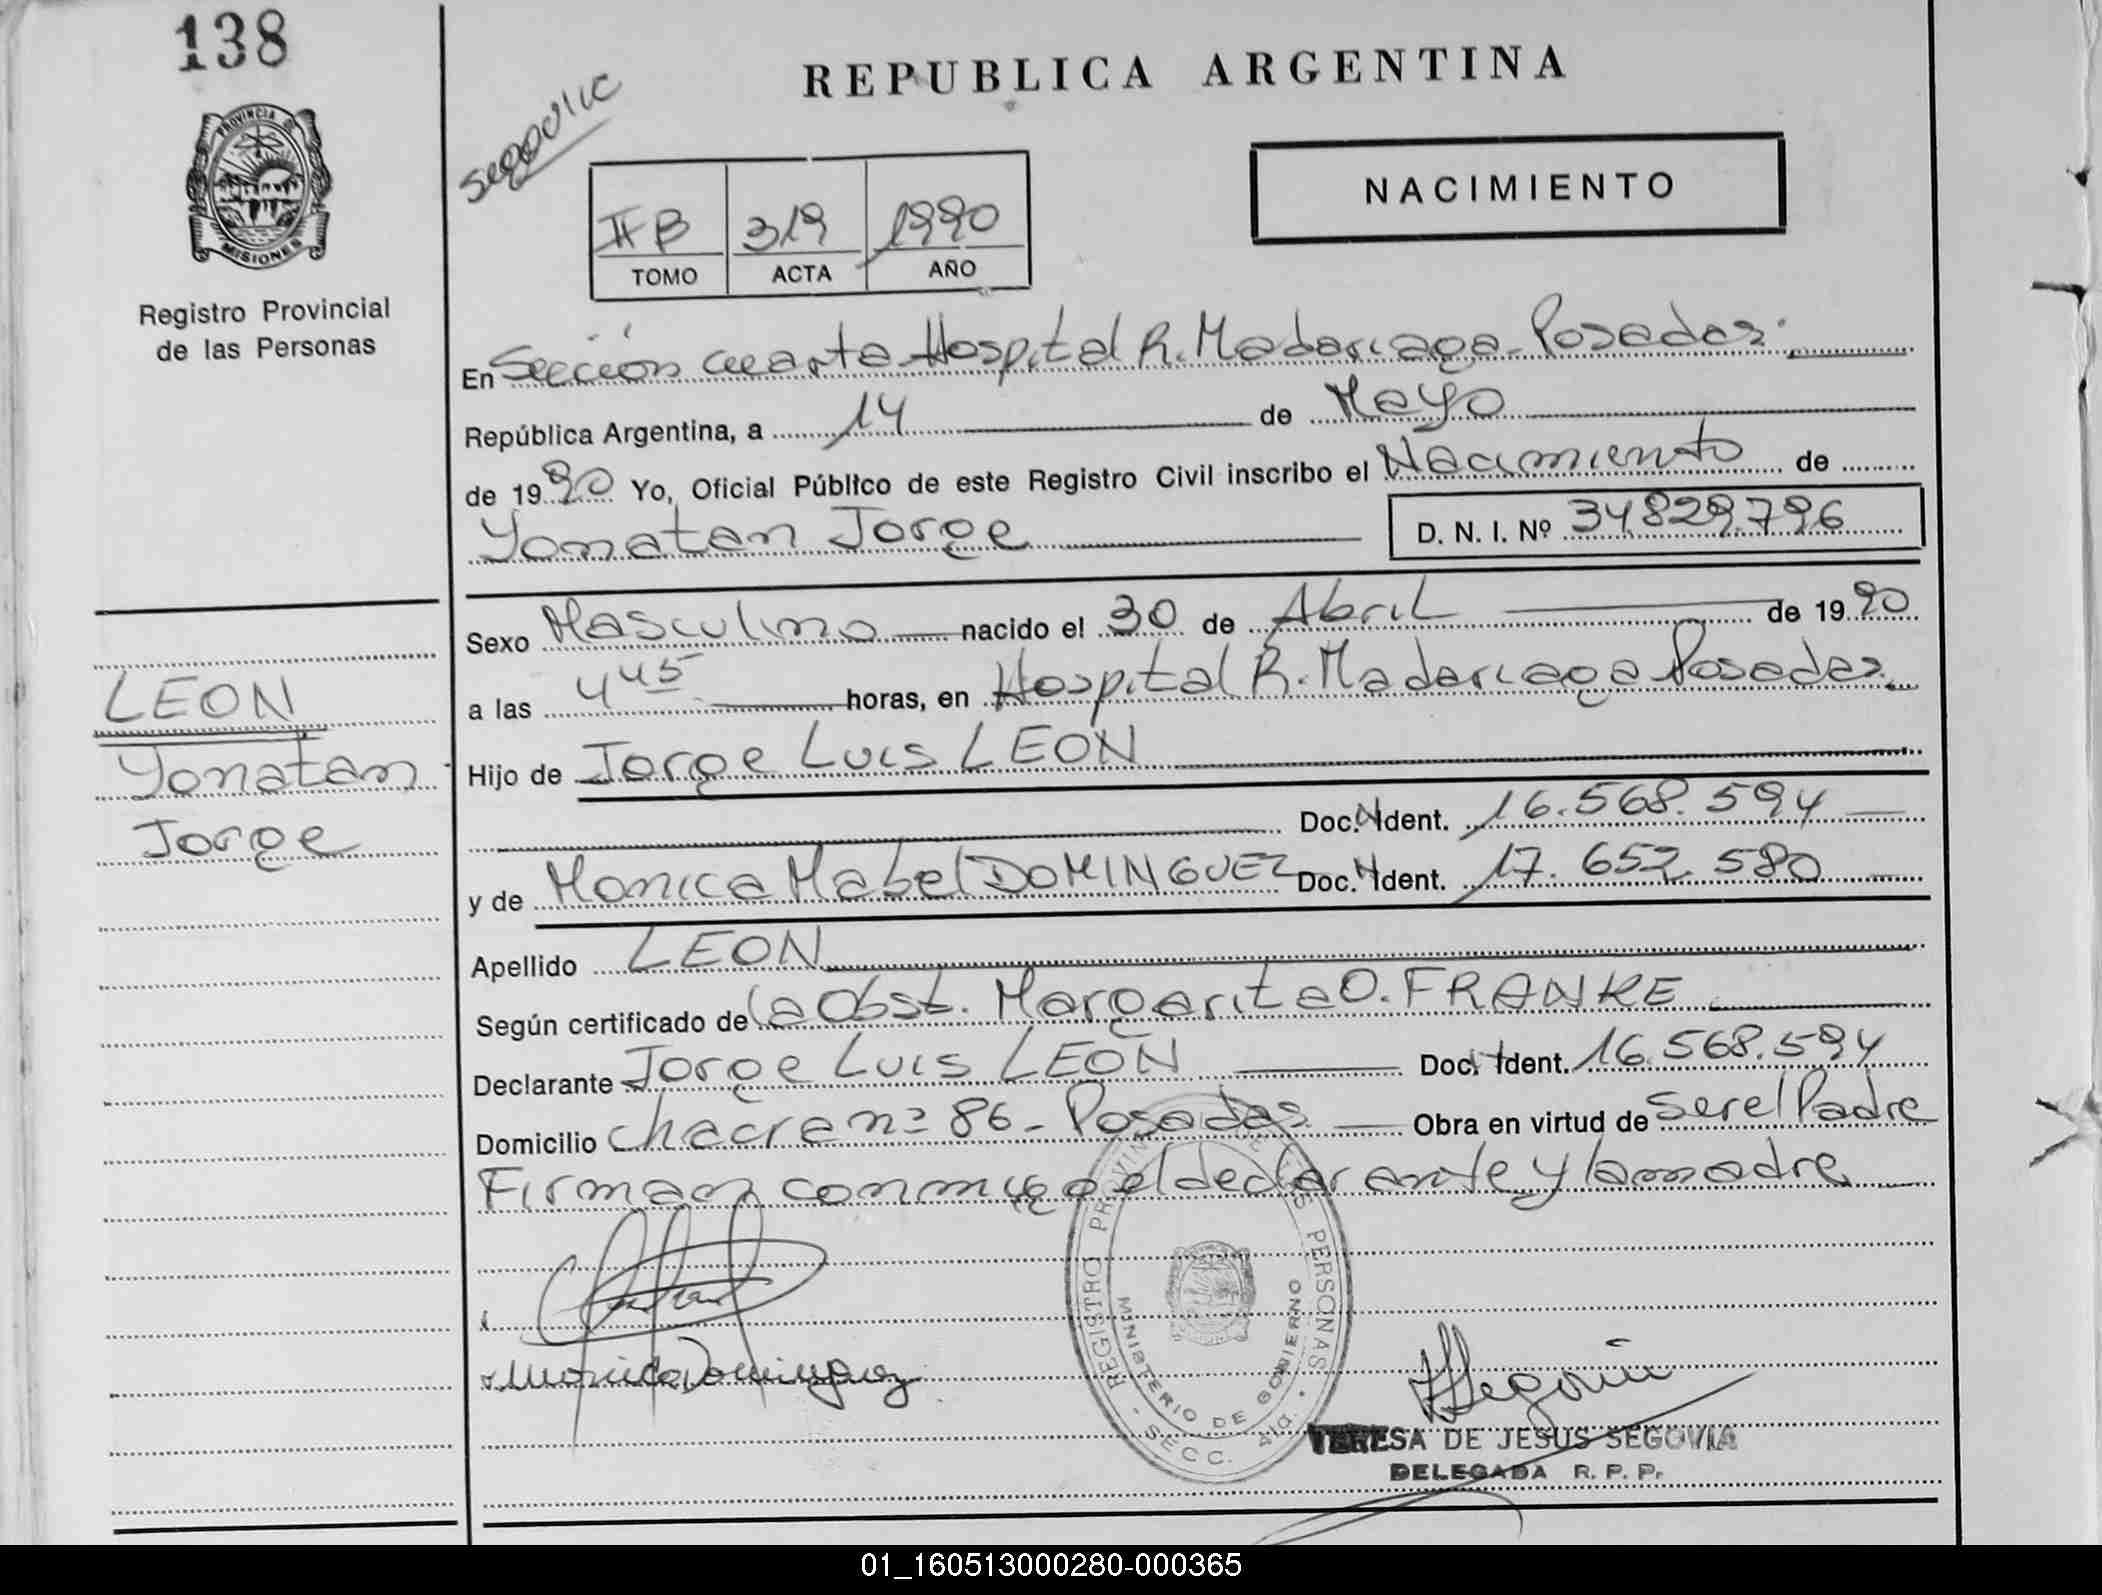 138
PROVINCIA DE
MISIONES
Registro Provincial
de las Personas
REPUBLICA ARGENTINA
NACIMIENTO
II B 319 1990
TOMO ACTA AÑO
En Sección cuarta Hospital R. Madariaga - Posadas.
República Argentina, a 14 de Mayo
de 1990 Yo, Oficial Público de este Registro Civil inscribo el Nacimiento de
Yonatan Jorge D. N. I. Nº 34.829.796
Sexo Masculino nacido el 30 de Abril de 1990
a las 4 45 horas, en Hospital R. Madariaga Posadas.
Hijo de Jorge Luis LEON
Doc. N Ident. 16.568.594
y de Monica Mabel DOMINGUEZ Doc. N Ident. 17.652.580
Apellido LEON
Según certificado de la Obst. Margarita O. FRANKE
Declarante Jorge Luis LEON Doc. N Ident. 16.568.594
Domicilio chacra nº 86 - Posadas Obra en virtud de ser el Padre
Firman conmigo el declarante y la madre
LEON
Yonatan
Jorge
Monica Dominguez
REGISTRO PROVINCIAL DE LAS PERSONAS
MINISTERIO DE GOBIERNO
SECC. 4ta.
TERESA DE JESUS SEGOVIA
DELEGADA R. P. P.
01_160513000280-000365